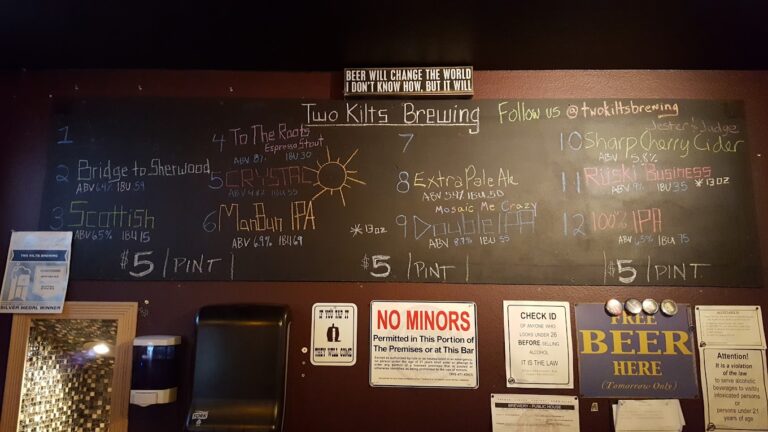 BEER WILL CHANGE THE WORLD
I DON'T KNOW HOW, BUT IT WILL
Two Kilts Brewing
Follow us @twokiltsbrewing
1
2 Bridge to Sherwood
ABV 6.4% IBU 59
3 Scottish
ABV 6.5% IBU 15
$5 /PINT
4 To The Roots
Espresso Stout
ABV 8% IBU 30
5 CRYSTAL
ABV IBU 55
6 ManBun IPA
ABV 6.9% IBU 69
7
8 Extra Pale Ale
ABV 5.4% IBU 50
Mosaic Me Crazy
*13oz
9 Double IPA
ABV 8.9% IBU 55
$5 /PINT
Jester & Judge
10 Sharp Charry Cider
ABV 5.8%
11 Riski Business
ABV 9% IBU 35 *13oz
12 100% IPA
ABV 6.5% IBU 75
$5 /PINT
TWO KILTS BREWING
SILVER MEDAL WINNER
TORK
IF YOU TAP IT
THEY WILL COME
NO MINORS
Permitted in This Portion of
The Premises or at This Bar
CHECK ID
OF ANYONE WHO
LOOKS UNDER 26
BEFORE SELLING
ALCOHOL
IT IS THE LAW
BREWERY - PUBLIC HOUSE
FREE
BEER
HERE
(Tomorrow Only)
Attention!
It is a violation
of the law
to serve alcoholic
beverages to visibly
intoxicated persons
or
persons under 21
years of age